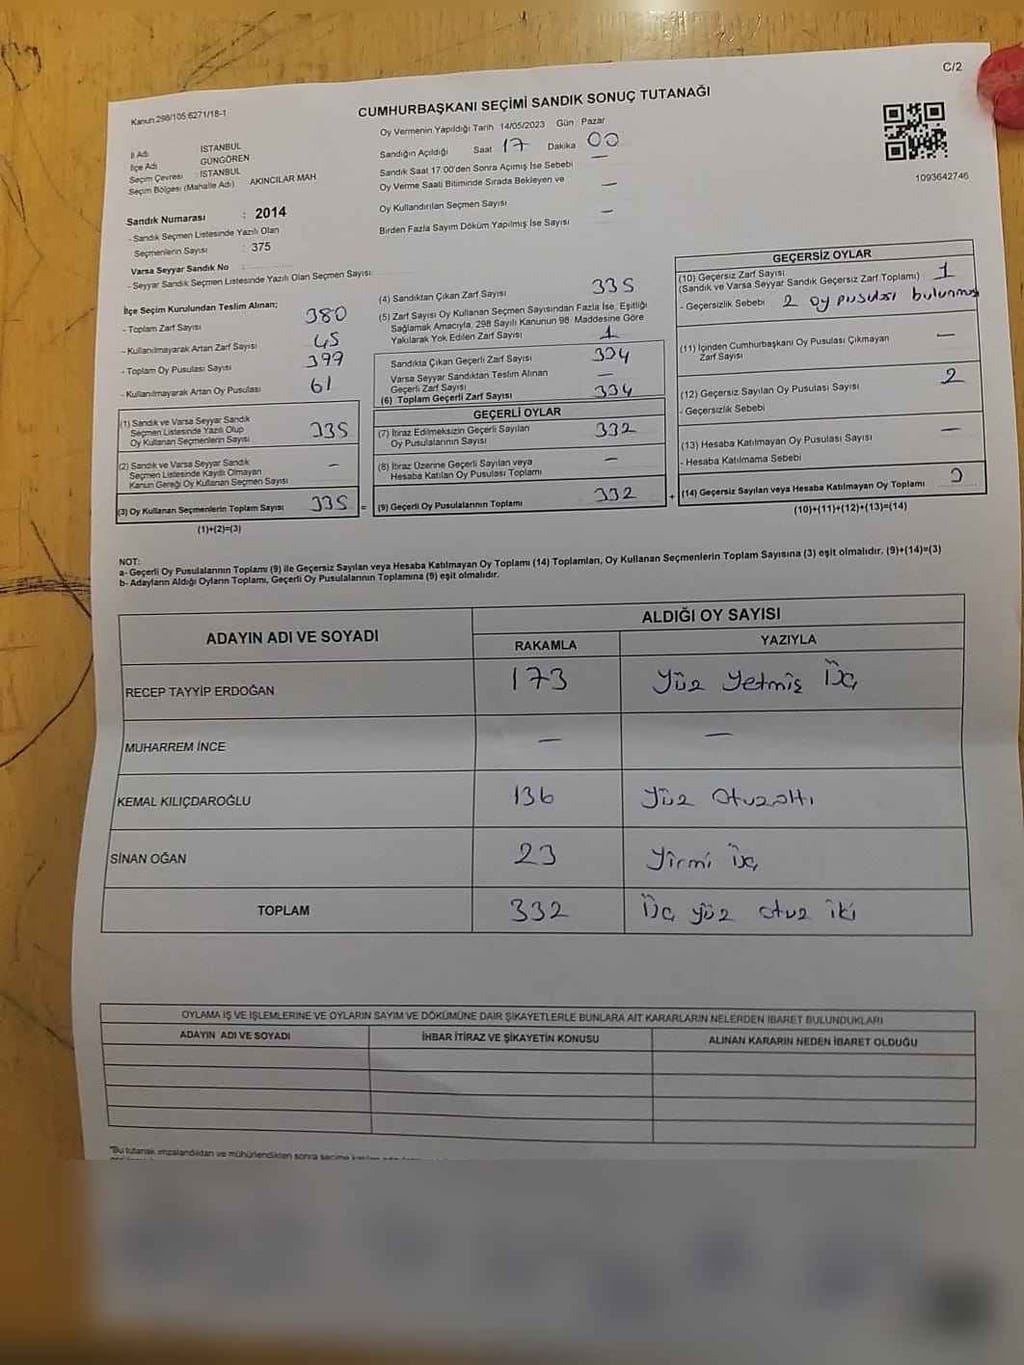 C/2
Kanun:298/105,6271/18-1
CUMHURBAŞKANI SEÇİMİ SANDIK SONUÇ TUTANAĞI
İl Adı İSTANBUL
İlçe Adı GÜNGÖREN
Seçim Çevresi : İSTANBUL
Seçim Bölgesi (Mahalle Adı) AKINCILAR MAH
Sandık Numarası : 2014
- Sandık Seçmen Listesinde Yazılı Olan
Seçmenlerin Sayısı : 375
Varsa Seyyar Sandık No :
- Seyyar Sandık Seçmen Listesinde Yazılı Olan Seçmen Sayısı:
Oy Vermenin Yapıldığı Tarih 14/05/2023 Gün : Pazar
Sandığın Açıldığı Saat 17 Dakika 00
Sandık Saat 17:00'den Sonra Açımış İse Sebebi —
Oy Verme Saati Bitiminde Sırada Bekleyen ve
Oy Kullandırılan Seçmen Sayısı —
Birden Fazla Sayım Döküm Yapılmış İse Sayısı —
1093642746
İlçe Seçim Kurulundan Teslim Alınan;
- Toplam Zarf Sayısı 380
- Kullanılmayarak Artan Zarf Sayısı 45
- Toplam Oy Pusulası Sayısı 399
- Kullanılmayarak Artan Oy Pusulası 61
(1) Sandık ve Varsa Seyyar Sandık
Seçmen Listesinde Yazılı Olup
Oy Kullanan Seçmenlerin Sayısı 335
(2) Sandık ve Varsa Seyyar Sandık
Seçmen Listesinde Kayıtlı Olmayan
Kanun Gereği Oy Kullanan Seçmen Sayısı —
(3) Oy Kullanan Seçmenlerin Toplam Sayısı 335
(1)+(2)=(3)
(4) Sandıktan Çıkan Zarf Sayısı 335
(5) Zarf Sayısı Oy Kullanan Seçmen Sayısından Fazla İse, Eşitliği
Sağlamak Amacıyla, 298 Sayılı Kanunun 98. Maddesine Göre
Yakılarak Yok Edilen Zarf Sayısı 1
Sandıkta Çıkan Geçerli Zarf Sayısı 334
Varsa Seyyar Sandıktan Teslim Alınan
Geçerli Zarf Sayısı —
(6) Toplam Geçerli Zarf Sayısı 334
GEÇERLİ OYLAR
(7) İtiraz Edilmeksizin Geçerli Sayılan
Oy Pusulalarının Sayısı 332
(8) İtiraz Üzerine Geçerli Sayılan veya
Hesaba Katılan Oy Pusulası Toplamı —
= (9) Geçerli Oy Pusulalarının Toplamı 332 +
GEÇERSİZ OYLAR
(10) Geçersiz Zarf Sayısı
(Sandık ve Varsa Seyyar Sandık Geçersiz Zarf Toplamı) 1
- Geçersizlik Sebebi 2 oy pusulası bulunmuş
(11) İçinden Cumhurbaşkanı Oy Pusulası Çıkmayan
Zarf Sayısı —
(12) Geçersiz Sayılan Oy Pusulası Sayısı 2
- Geçersizlik Sebebi
(13) Hesaba Katılmayan Oy Pusulası Sayısı —
- Hesaba Katılmama Sebebi
(14) Geçersiz Sayılan veya Hesaba Katılmayan Oy Toplamı
(10)+(11)+(12)+(13)=(14)
NOT:
a- Geçerli Oy Pusulalarının Toplamı (9) ile Geçersiz Sayılan veya Hesaba Katılmayan Oy Toplamı (14) Toplamları, Oy Kullanan Seçmenlerin Toplam Sayısına (3) eşit olmalıdır. (9)+(14)=(3)
b- Adayların Aldığı Oyların Toplamı, Geçerli Oy Pusulalarının Toplamına (9) eşit olmalıdır.
ADAYIN ADI VE SOYADI ALDIĞI OY SAYISI
RAKAMLA YAZIYLA
RECEP TAYYİP ERDOĞAN 173 Yüz Yetmiş Üç
MUHARREM İNCE — —
KEMAL KILIÇDAROĞLU 136 Yüz Otuzaltı
SİNAN OĞAN 23 Yirmi Üç
TOPLAM 332 Üç yüz otuz iki
OYLAMA İŞ VE İŞLEMLERİNE VE OYLARIN SAYIM VE DÖKÜMÜNE DAİR ŞİKAYETLERLE BUNLARA AİT KARARLARIN NELERDEN İBARET BULUNDUKLARI
ADAYIN ADI VE SOYADI İHBAR İTİRAZ VE ŞİKAYETİN KONUSU ALINAN KARARIN NEDEN İBARET OLDUĞU
*Bu tutanak imzalandıktan ve mühürlendikten sonra seçime